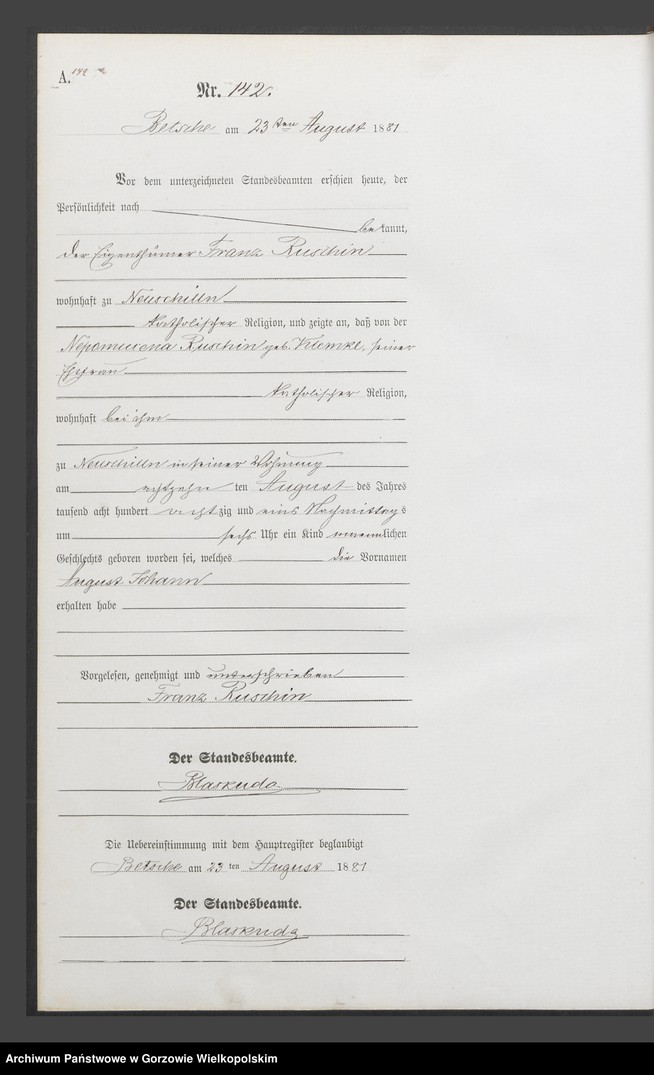 A. 142
Nr. 142.
Betsche am 23 ten August 1881
Vor dem unterzeichneten Standesbeamten erschien heute, der
Persönlichkeit nach
bekannt,
der Eigenthümer Franz Ruschin
wohnhaft zu Neuschilln
katholischer Religion, und zeigte an, daß von der
Nepomucena Ruschin geb. Klemke, seiner
Ehefrau
katholischer Religion,
wohnhaft bei ihm
zu Neuschilln in seiner Wohnung
am achtzehn ten August des Jahres
tausend acht hundert achtzig und eins Nachmittags
um sechs Uhr ein Kind männlichen
Geschlechts geboren worden sei, welches die Vornamen
August Johann
erhalten habe
Vorgelesen, genehmigt und unterschrieben
Franz Ruschin
Der Standesbeamte.
Blaskuda
Die Uebereinstimmung mit dem Hauptregister beglaubigt
Betsche am 23 ten August 1881
Der Standesbeamte.
Blaskuda
Archiwum Państwowe w Gorzowie Wielkopolskim